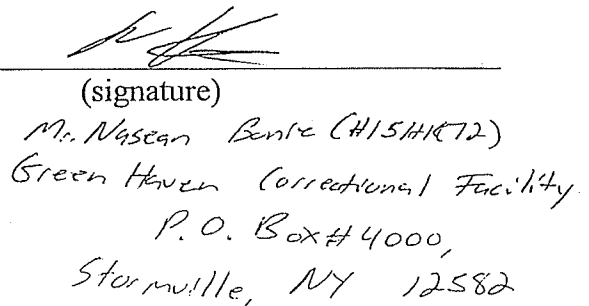 (signature)
Mr. Nasean Bonie (#15A1672)
Green Haven Correctional Facility
P.O. Box # 4000,
Stormville, NY 12582